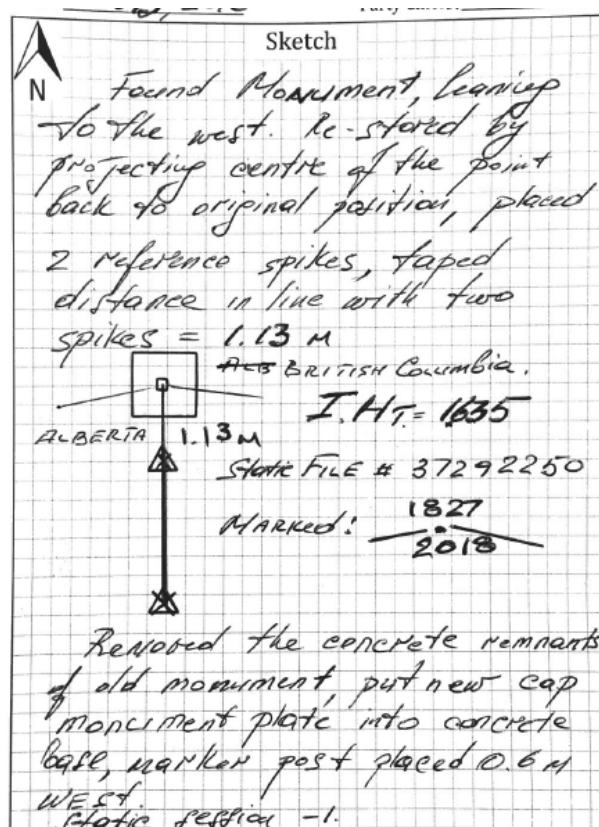 Sketch
N
Found Monument, leaning
to the west. Re-stored by
projecting centre of the point
back to original position, placed
2 reference spikes, taped
distance in line with two
spikes = 1.13 M
ALB BRITISH COLUMBIA.
I.HT. = 1635
ALBERTA 1.13 M
Static FILE # 37292250
MARKED: 1827
2018
Removed the concrete remnants
of old monument, put new cap
monument plate into concrete
base, marker post placed 0.6 M
WEST.
Static session -1.